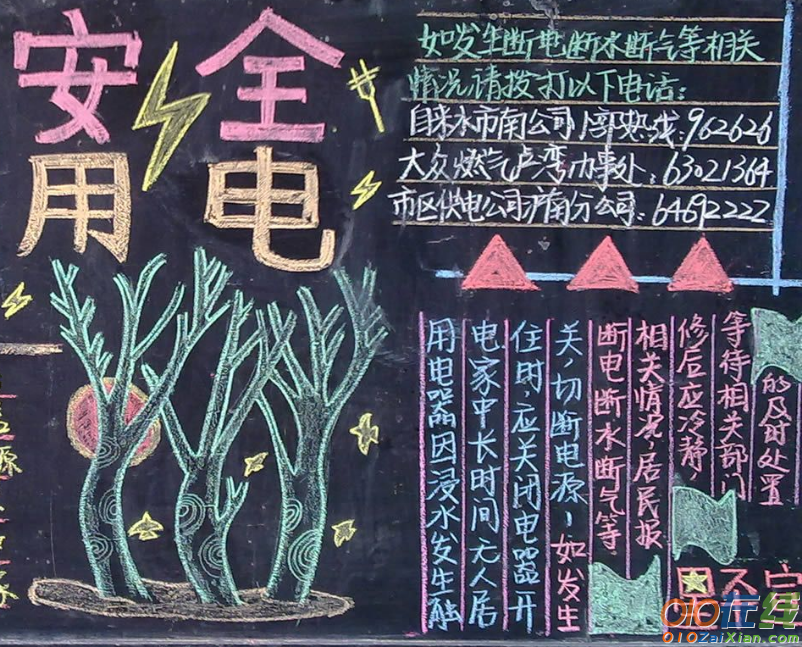 安全
用电
如发生断电断水断气等相关
情况,请拨打以下电话:
自来水市南公司小郭热线:962626
大众燃气卢湾办事处:63021364
市区供电公司沪南分公司:64692222
用电器因浸水发生触
电家中长时间无人居
住时,应关闭电器开
关,切断电源,如发生
断电断水断气等
相关情况,居民报
修后应冷静,
等待相关部门
的及时处置
源
010在线
010ZaiXian.com